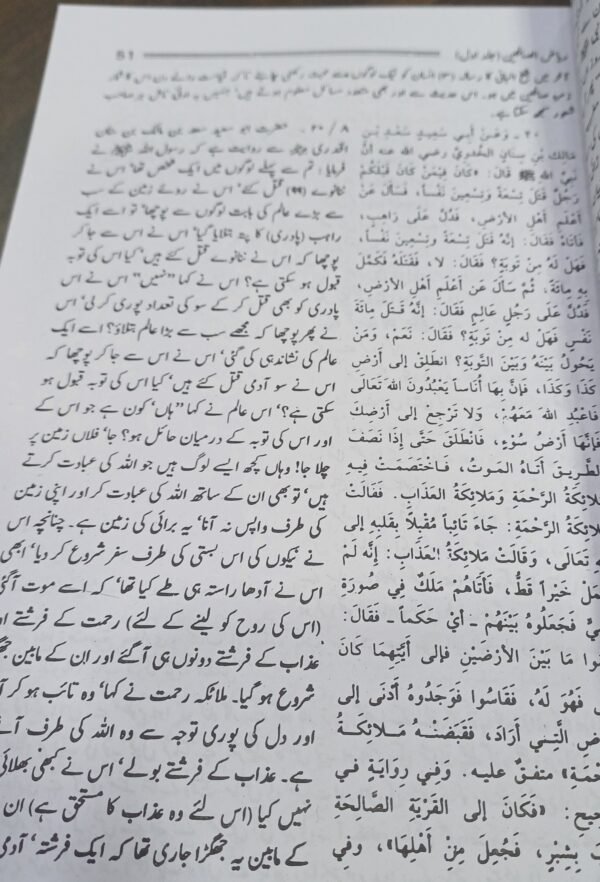 ریاض الصالحین (جلد اول) 51
انسان کو نیک لوگوں سے محبت رکھنی چاہئے تاکہ قیامت والے دن اس کا شمار
میں ہو۔ اس حدیث سے اور بھی متعدد مسائل معلوم ہوتے ہیں
٢٠ - وَعَنْ أَبِي سَعِيدٍ سَعْدِ بْنِ
مَالِكِ بْنِ سِنَانٍ الْخُدْرِيِّ رضي الله عنه أَنَّ
نَبِيَّ الله ﷺ قَالَ: «كَانَ فِيمَنْ كَانَ قَبْلَكُمْ
رَجُلٌ قَتَلَ تِسْعَةً وَتِسْعِينَ نَفْساً، فَسَأَلَ عَنْ
أَعْلَمِ أَهْلِ الأَرْضِ، فَدُلَّ عَلَى رَاهِبٍ،
فَأَتَاهُ فَقَالَ: إِنَّهُ قَتَلَ تِسْعَةً وَتِسْعِينَ نَفْساً،
فَهَلْ لَهُ مِنْ تَوْبَةٍ؟ فَقَالَ: لا، فَقَتَلَهُ فَكَمَّلَ
بِهِ مِائَةً، ثُمَّ سَأَلَ عَنْ أَعْلَمِ أَهْلِ الأَرْضِ،
فَدُلَّ عَلَى رَجُلٍ عَالِمٍ فَقَالَ: إِنَّهُ قَتَلَ مِائَةَ
نَفْسٍ فَهَلْ لَهُ مِنْ تَوْبَةٍ؟ فَقَالَ: نَعَمْ، وَمَنْ
يَحُولُ بَيْنَهُ وَبَيْنَ التَّوْبَةِ؟ انْطَلِقْ إِلَى أَرْضِ
كَذَا وَكَذَا، فَإِنَّ بِهَا أُنَاساً يَعْبُدُونَ الله تَعَالَى
فَاعْبُدِ الله مَعَهُمْ، وَلا تَرْجِعْ إِلَى أَرْضِكَ
فَإِنَّهَا أَرْضُ سُوْءٍ، فَانْطَلَقَ حَتَّى إِذَا نَصَفَ
الطَّرِيقَ أَتَاهُ الْمَوْتُ، فَاخْتَصَمَتْ فِيهِ
مَلائِكَةُ الرَّحْمَةِ وَمَلائِكَةُ الْعَذَابِ. فَقَالَتْ
مَلائِكَةُ الرَّحْمَةِ: جَاءَ تَائِباً مُقْبِلاً بِقَلْبِهِ إِلَى
تَعَالَى، وَقَالَتْ مَلائِكَةُ الْعَذَابِ: إِنَّهُ لَمْ
خَيْراً قَطُّ، فَأَتَاهُمْ مَلَكٌ فِي صُورَةِ
فَجَعَلُوهُ بَيْنَهُمْ - أَيْ حَكَماً - فَقَالَ:
مَا بَيْنَ الأَرْضَيْنِ فَإِلَى أَيَّتِهِمَا كَانَ
فَهُوَ لَهُ، فَقَاسُوا فَوَجَدُوهُ أَدْنَى إِلَى
الَّتِي أَرَادَ، فَقَبَضَتْهُ مَلائِكَةُ
متفقٌ عليه. وَفِي رِوَايَةٍ فِي
«فَكَانَ إِلَى الْقَرْيَةِ الصَّالِحَةِ
بِشِبْرٍ، فَجُعِلَ مِنْ أَهْلِهَا»، وَفِي
٨ / ٢٠ ۔ حضرت ابو سعید سعد بن مالک بن سنان
الخدری سے روایت ہے کہ رسول اللہ ﷺ نے
فرمایا: تم سے پہلے لوگوں میں ایک شخص تھا' اس نے
ننانوے (۹۹) قتل کئے' اس نے روئے زمین کے سب
سے بڑے عالم کی بابت لوگوں سے پوچھا' تو اسے ایک
راہب (پادری) کا پتہ بتلایا گیا' اس نے اس سے جا کر
پوچھا کہ اس نے ننانوے قتل کئے ہیں' کیا اس کی توبہ
قبول ہو سکتی ہے؟ اس نے کہا "نہیں" اس نے اس
پادری کو بھی قتل کر کے سو کی تعداد پوری کر لی' اس
نے پھر پوچھا کہ مجھے سب سے بڑا عالم بتلاؤ؟ اسے ایک
عالم کی نشاندہی کی گئی' اس نے اس سے جا کر پوچھا کہ
اس نے سو آدمی قتل کئے ہیں' کیا اس کی توبہ قبول ہو
سکتی ہے؟' اس عالم نے کہا "ہاں' کون ہے جو اس کے
اور اس کی توبہ کے درمیان حائل ہو؟ جا' فلاں زمین پر
چلا جا! وہاں کچھ ایسے لوگ ہیں جو اللہ کی عبادت کرتے
ہیں' تو بھی ان کے ساتھ اللہ کی عبادت کر اور اپنی زمین
کی طرف واپس نہ آنا' یہ برائی کی زمین ہے۔ چنانچہ اس
نے نیکوں کی اس بستی کی طرف سفر شروع کر دیا' ابھی
اس نے آدھا راستہ ہی طے کیا تھا' کہ اسے موت آگئی
(اس کی روح کو لینے کے لئے) رحمت کے فرشتے اور
عذاب کے فرشتے دونوں ہی آگئے اور ان کے مابین
شروع ہو گیا۔ ملائکہ رحمت نے کہا' وہ تائب ہو کر
اور دل کی پوری توجہ سے وہ اللہ کی طرف
ہے۔ عذاب کے فرشتے بولے' اس نے کبھی بھلائی
نہیں کیا (اس لئے وہ عذاب کا مستحق ہے) ان
کے مابین یہ جھگڑا جاری تھا کہ ایک فرشتہ' آدمی